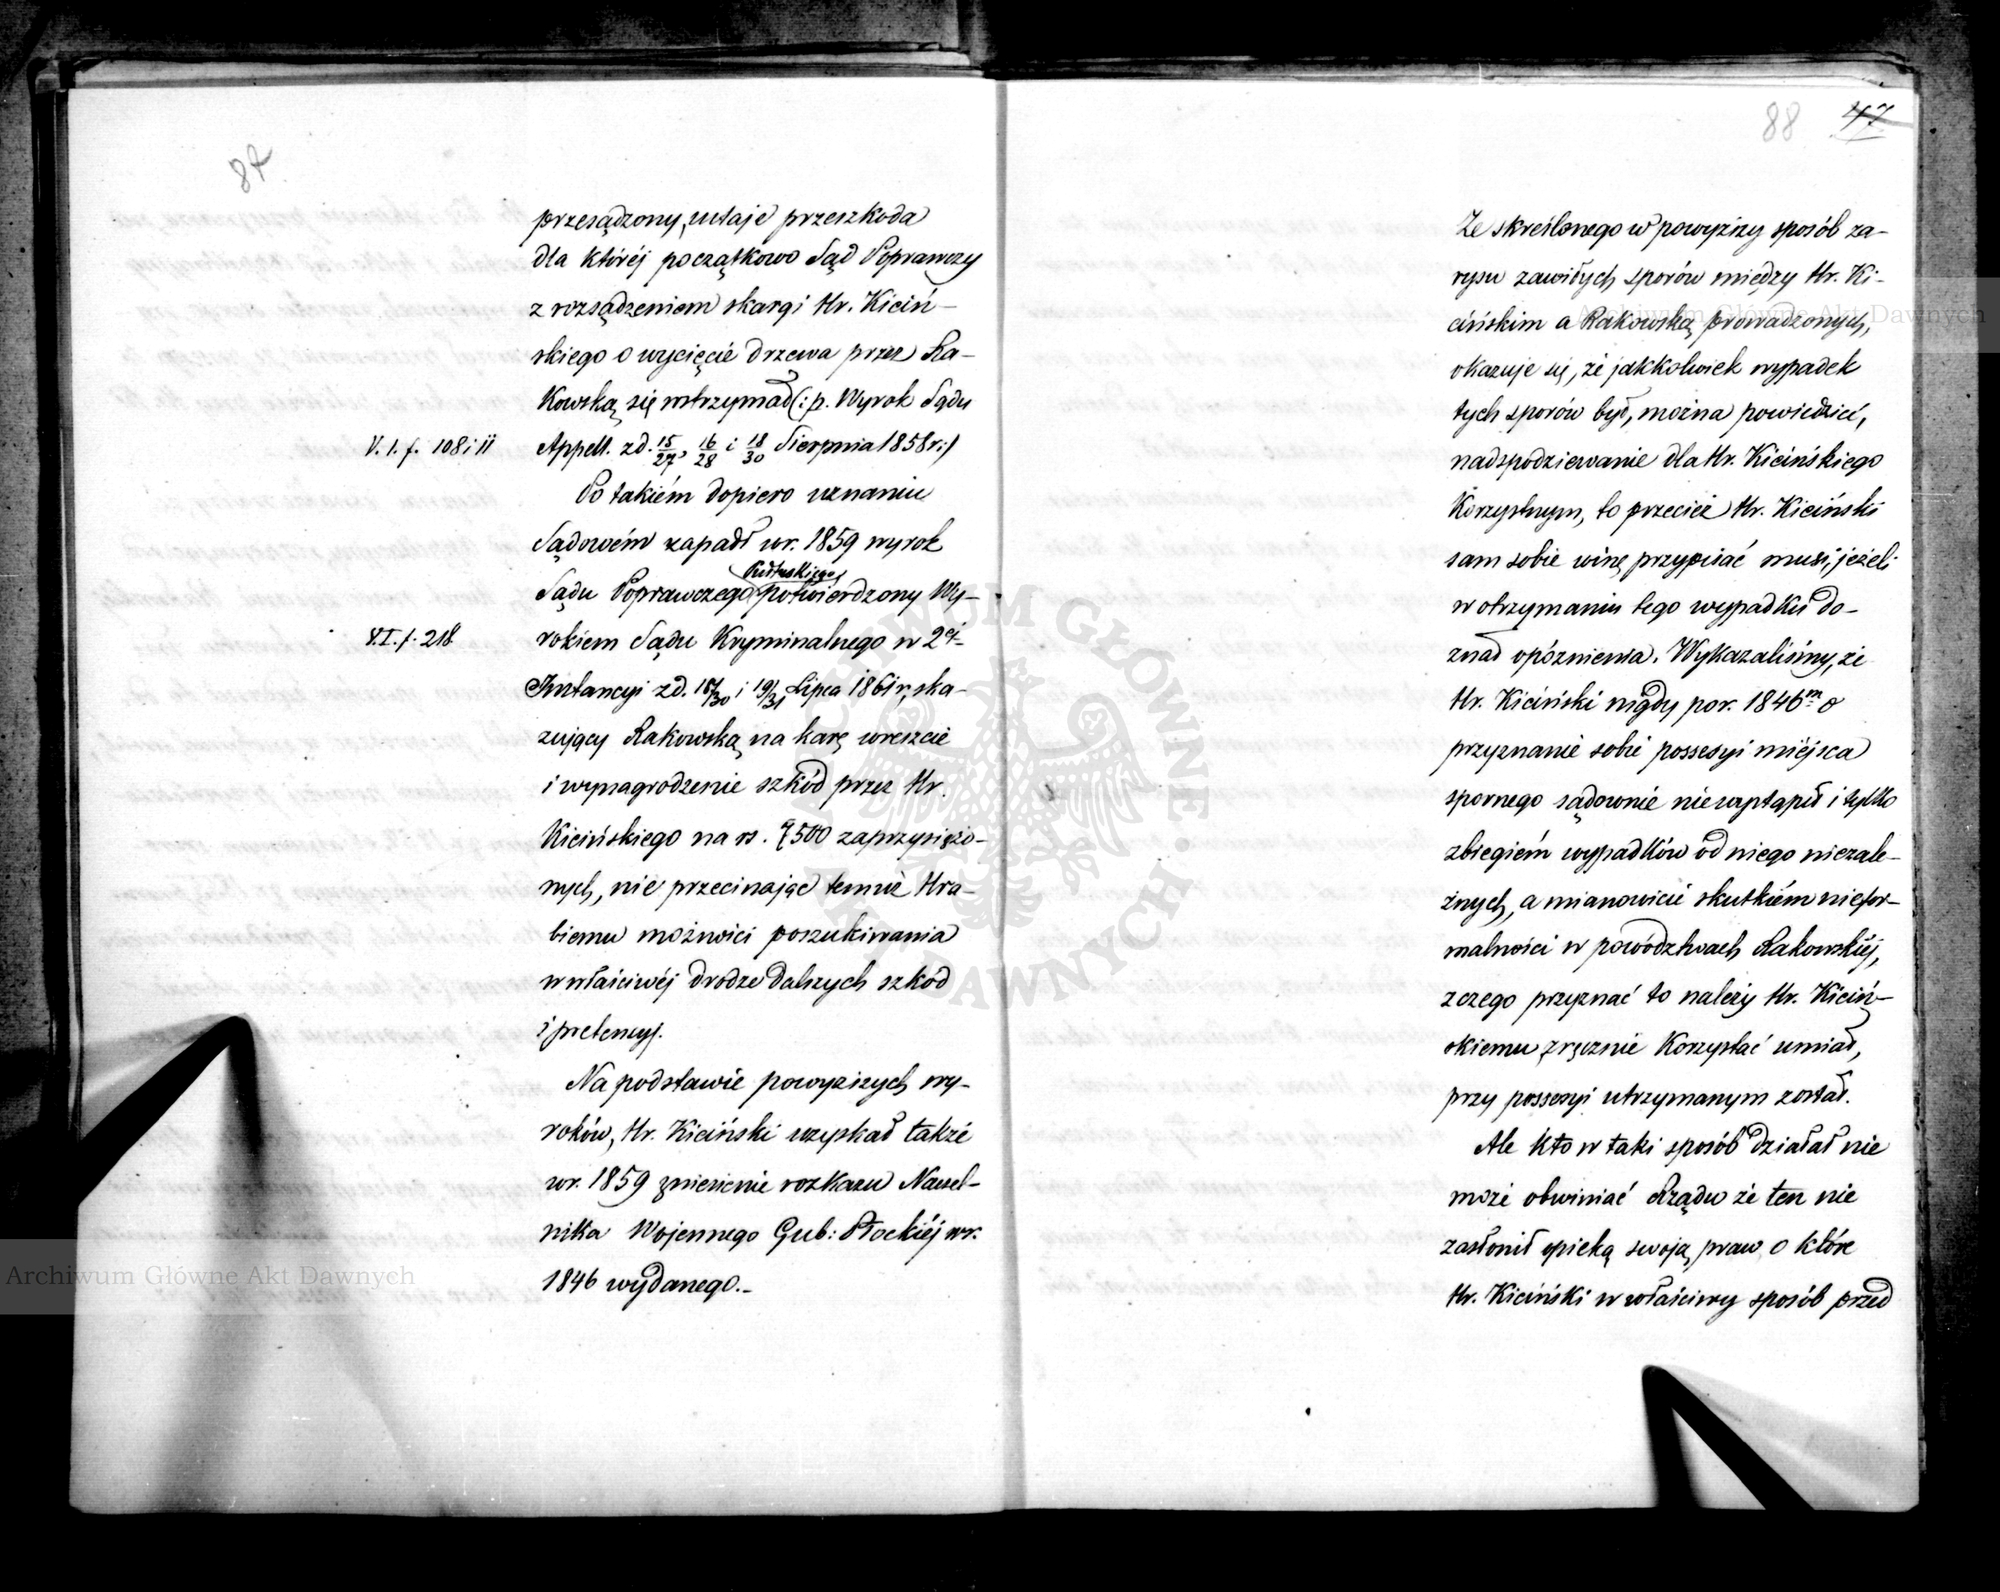 87
przesądzony, ustaje przeszkoda
dla któréj początkowo Sąd Poprawczy
z rozsądzeniem skargi Hr. Kiciń-
skiego o wycięcie drzewa przez Ra-
kowską się wstrzymał (:p. Wyrok Sądu
V. 1. f. 108 i 11
Appell. z d. 15/27, 16/28 i 18/30 Sierpnia 1858 r:)
Po takiém dopiero uznaniu
Sądowém zapadł w r. 1859 wyrok
Pułtuskiego
Sądu Poprawczego potwierdzony Wy-
V.I. f. 218
rokiem Sądu Kryminalnego w 2éj
Instancyi z d. 18/30 i 19/31 Lipca 1861 r, ska-
zujący Rakowską na karę wreszcie
i wynagrodzenie szkód przez Hr.
Kicińskiego na rs. 7500 zaprzysiężo-
nych, nie przecinając temuż Hra-
biemu możności poszukiwania
w właściwéj drodze dalszych szkód
i pretensyj.
Na podstawie powyższych wy-
roków, Hr. Kiciński uzyskał także
w r. 1859 zniesienie rozkazu Naczel-
nika Wojennego Gub: Płockiéj w r.
1846 wydanego.-
88 47
Ze skreślonego w powyższy sposób za-
rysu zawiłych sporów między Hr. Ki-
cińskim a Rakowską prowadzonych,
okazuje się, że jakkolwiek wypadek
tych sporów był, można powiedzieć,
nadspodziewanie dla Hr. Kicińskiego
korzystnym, to przecież Hr. Kiciński
sam sobie winę przypisać musi, jeżeli
w otrzymaniu tego wypadku do-
znał opóźnienia. Wykazaliśmy, że
Hr. Kiciński nigdy po r. 1846m o
przyznanie sobie possesyi miéjsca
spornego sądownie nie wystąpił i tylko
zbiegiém wypadków od niego niezale-
żnych, a mianowicie skutkiém niefor-
malności w powództwach Rakowskiéj,
z czego przyznać to należy Hr. Kiciń-
skiemu zręcznie korzystać umiał,
przy possesyi utrzymanym został.
Ale kto w taki sposób działał nie
może obwiniać Rządu że ten nie
zasłonił opieką swoją praw, o które
Hr. Kiciński w właściwy sposób przed
Archiwum Główne Akt Dawnych
Archiwum Główne Akt Dawnych
ARCHIWUM GŁÓWNE AKT DAWNYCH